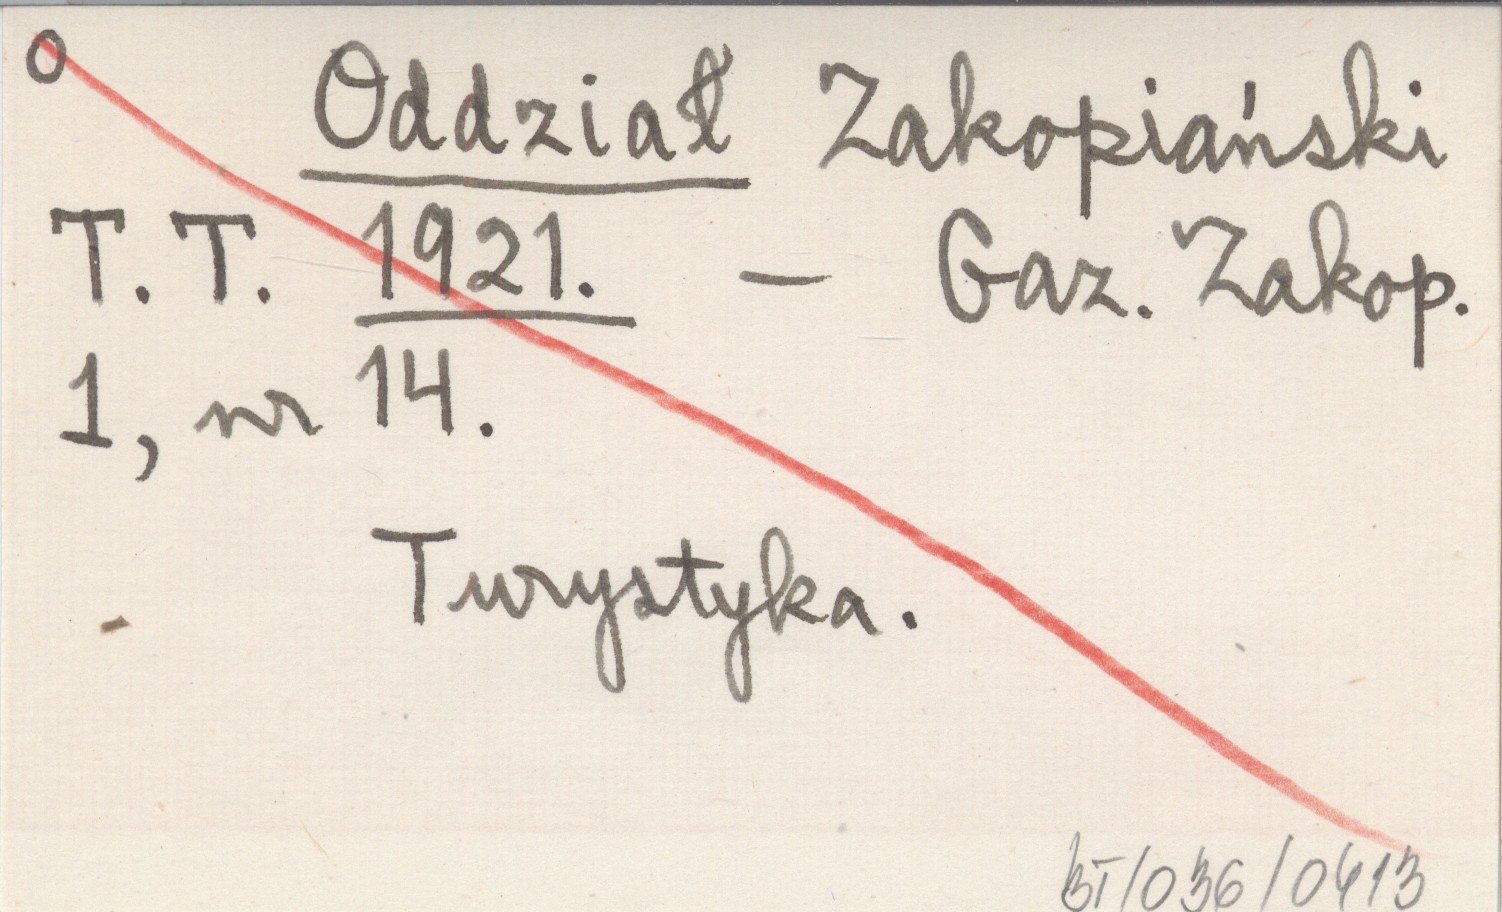 O
Oddział Zakopiański
T. T. 1921. — Gaz. Zakop.
1, nr 14.
Turystyka.
BT/036/0413